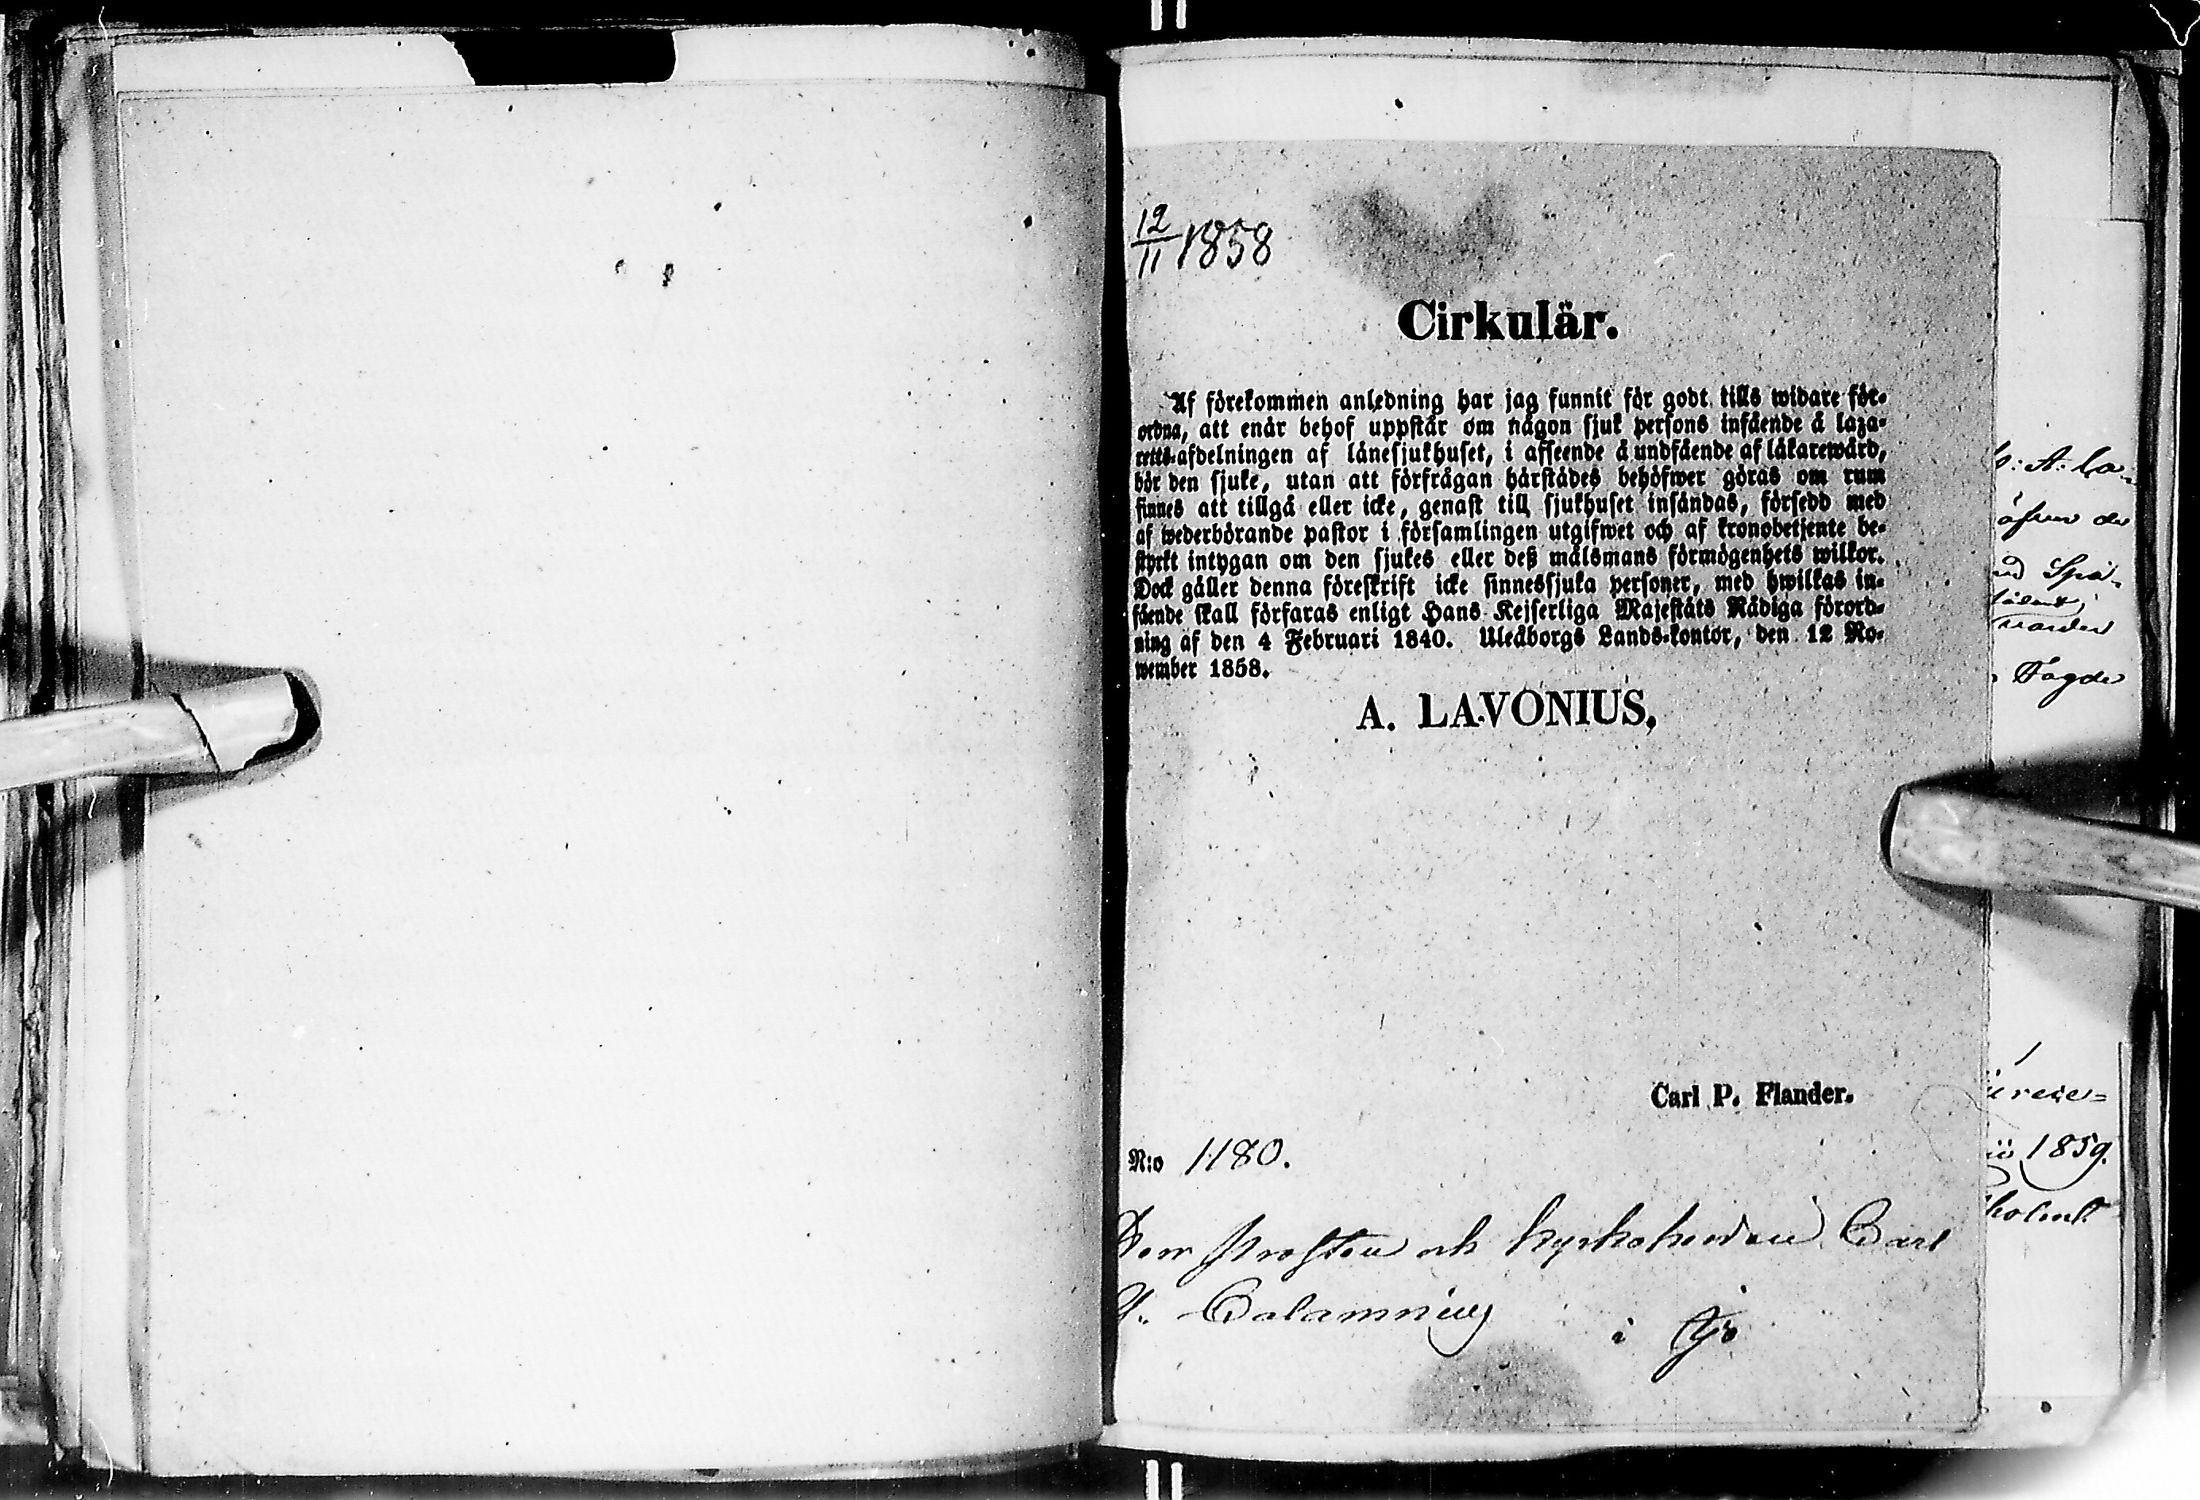 12/11 1858
Cirkulär.
Af förekommen anledning har jag funnit för godt tills widare för-
ordna, att enär behof uppstår om någon sjuk persons infående å laza-
retts-afdelningen af länesjukhuset, i afseende å undfående af läkarewård,
bör den sjuke, utan att förfrågan härstädes behöfwer göras om rum
finnes att tillgå eller icke, genast till sjukhuset insändas, försedd med
af wederbörande pastor i församlingen utgifwet och af kronobetjente be-
styrkt intygan om den sjukes eller deß målsmans förmögenhets wilkor.
Dock gäller denna föreskrift icke sinnessjuka personer, med hwilkas in-
fående skall förfaras enligt Hans Kejserliga Majestäts Nådiga förord-
ning af den 4 Februari 1840. Uleåborgs Lands-kontor, den 12 No-
wember 1858.
A. LAVONIUS.
Carl P. Flander.
N:o 1180.
Herr Prosten och Kyrkoherden Carl
Calamnius i Ijo
1859.